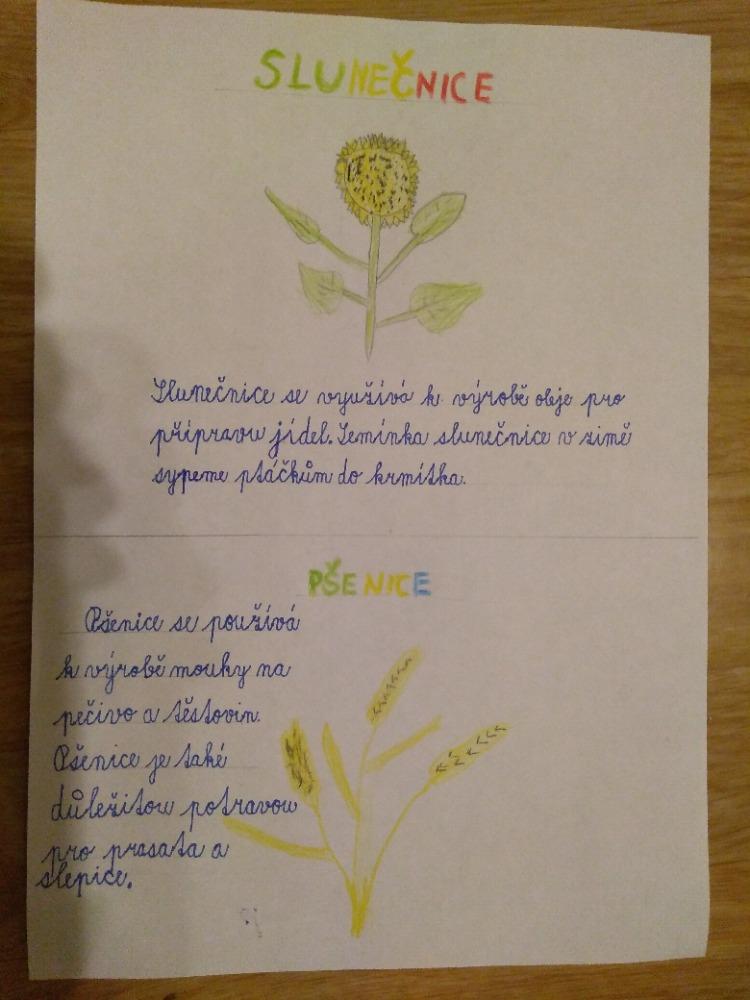 SLUNEČNICE
Slunečnice se využívá k výrobě oleje pro
přípravu jídel. Semínka slunečnice v zimě
sypeme ptáčkům do krmítka.
PŠENICE
Pšenice se používá
k výrobě mouky na
pečivo a těstovin.
Pšenice je také
důležitou potravou
pro prasata a
slepice.